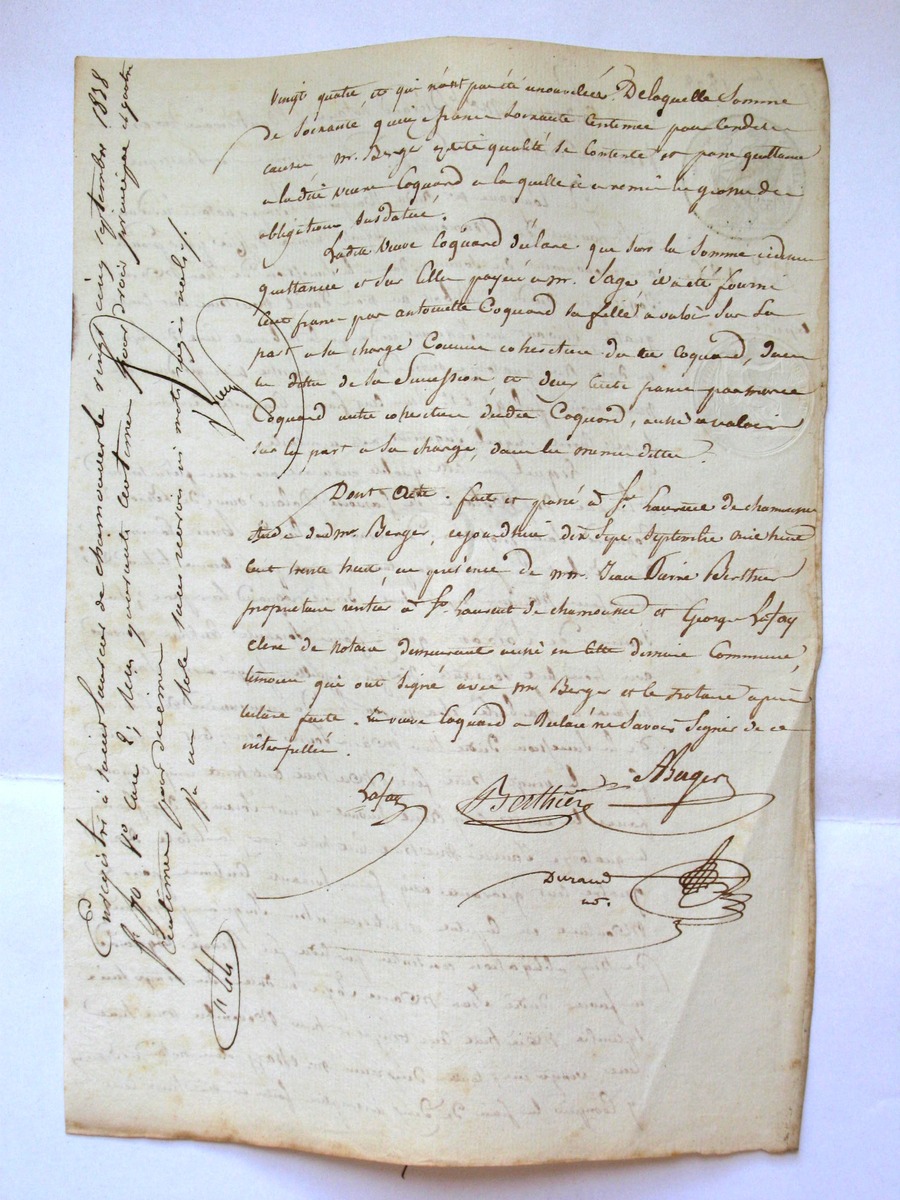 Vingt quatre, et qui n'ont pas été renouvelée. De laquelle Somme
de Soixante quinze francs soixante Centimes pour
cause mr. Berger es dite qualité se Contente et passe quittance
a la dite veuve Coquard a laquelle il a remis la grosse de
obligation susdatée.
Ladite veuve Coquard déclare que sur la Somme ci dessus
quittancée et sur Celle payée a mr. Sage il a été fourni
Cent francs par antoinette Coquard sa fille a valoir Sur La
part a sa charge Comme cohéritière du Coquard, dans
la dette de la Succession et deux Cents francs par marie
Coquard autre cohéritière dudit Coquard, aussi a valoir
sur la part a sa charge, dans la meme dette.
Dont acte. fait et passé à St. Laurent de chamousset
étude de mr. Berger, cejourd'hui dix Sept Septembre mil huit
Cent trente huit, en présence de mm. Jean Pierre Berthier
propriétaire rentier à St. Laurent de chamousset et George Lafay
Clerc de notaire demeurant aussi en Cette derniere Commune,
témoins qui ont Signé avec mr Berger et le notaire après
lecture faite. La veuve Coquard a Déclaré ne Savoir Signer de ce
interpellée.
Lafay Berthier ABerger
Durand
no.
Enregistré à Saint Laurent de chamousset le vingt cinq septembre 1838
fo. 90 Vo. Case 2, reçu quarante centimes pour droit principal et quatre
Centimes pour décime
Vu un role sans renvoi ni mots rayés nuls.